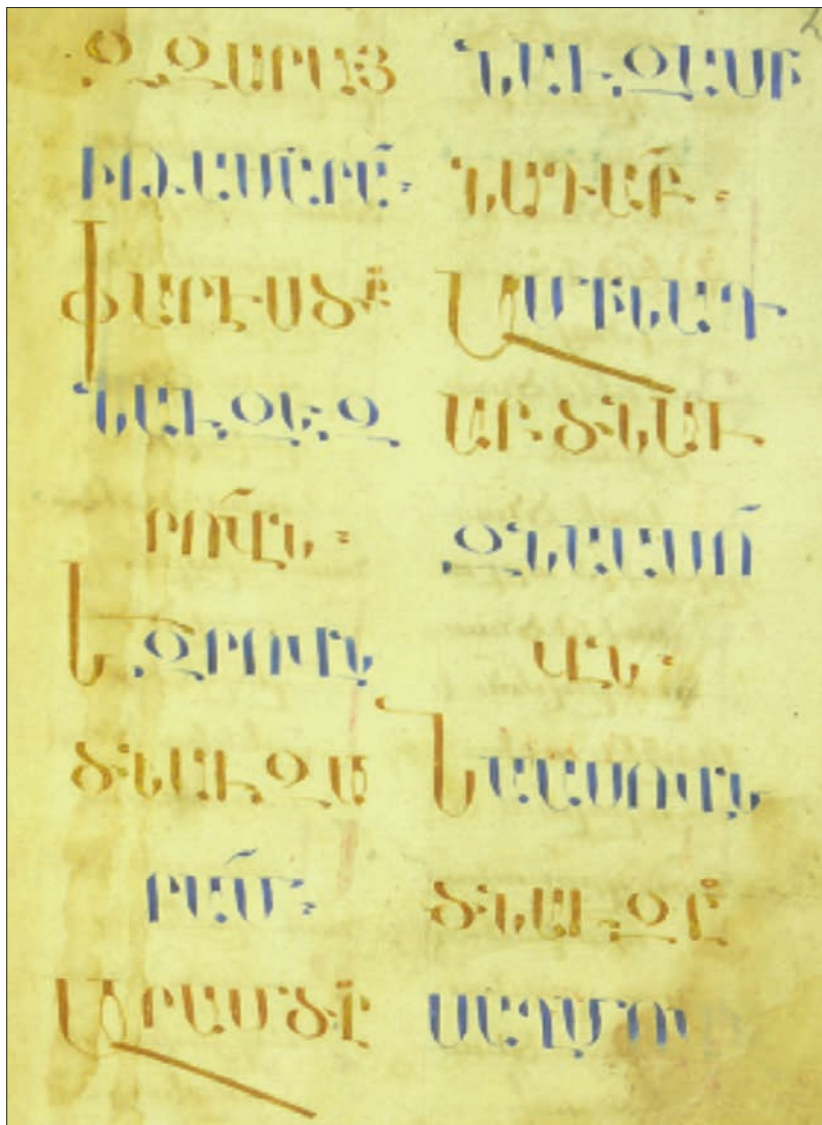 ԶԶԱՐԱՅ
ԻԹԱՄԱՐԱ:
ՓԱՐԷՍԾԸ
ՆԱՒ.ԶԵԶ
ՐՈՎՆ:
ԵԶՐՈՎՆ
ԾՆԱՒԶԱ
ՐԱՄ:
ԱՐԱՄԾԸ
ՆԱՒ.ԶԱՄԻ
ՆԱԴԱԲ:
ԱՄԻՆԱԴ
ԱԲԾՆԱՒ
ԶՆԱԱՍՈ
ՎՆ:
ՆԱԱՍՈՎՆ
ԾՆԱՒ.ԶԸ
ՍԱՂՄՈՆ